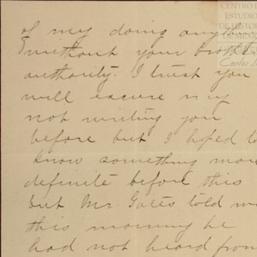 of my doing any
without your
authority. I trust you
will excuse my
not writing you
before but I hoped to
know something more
definite before this
but Mr. Gates told me
this morning he
had not heard from
CENTRO
ESTUDIO
DE HISTORI